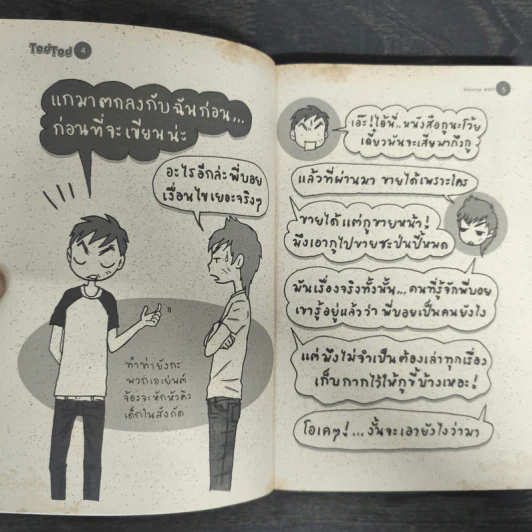 TedTed 4
แกมาตกลงกับฉันก่อน...
ก่อนที่จะเขียนน่ะ
อะไรอีกล่ะพี่บอย
เงื่อนไขเยอะจริงๆ
ทำท่ายังกะ
พวกเอเย่นต์
จ้องจะหักหัวคิว
เด็กในสังกัด
5
เอ๊ะ! ไอ้นี่..หนังสือกูนะโว้ย
เดี๋ยวมันจะเสียมาถึงกู
แล้วที่ผ่านมา ขายได้เพราะใคร
ขายได้แต่กูขายหน้า!
มึงเอากูไปขายซะป่นปี้หมด
มันเรื่องจริงทั้งนั้น...คนที่รู้จักพี่บอย
เขารู้อยู่แล้วว่า พี่บอยเป็นคนยังไง
แต่มึงไม่จำเป็นต้องเล่าทุกเรื่อง
เก็บกากไว้ให้กูขี้บ้างเหอะ!
โอเคๆ!...งั้นจะเอายังไงว่ามา